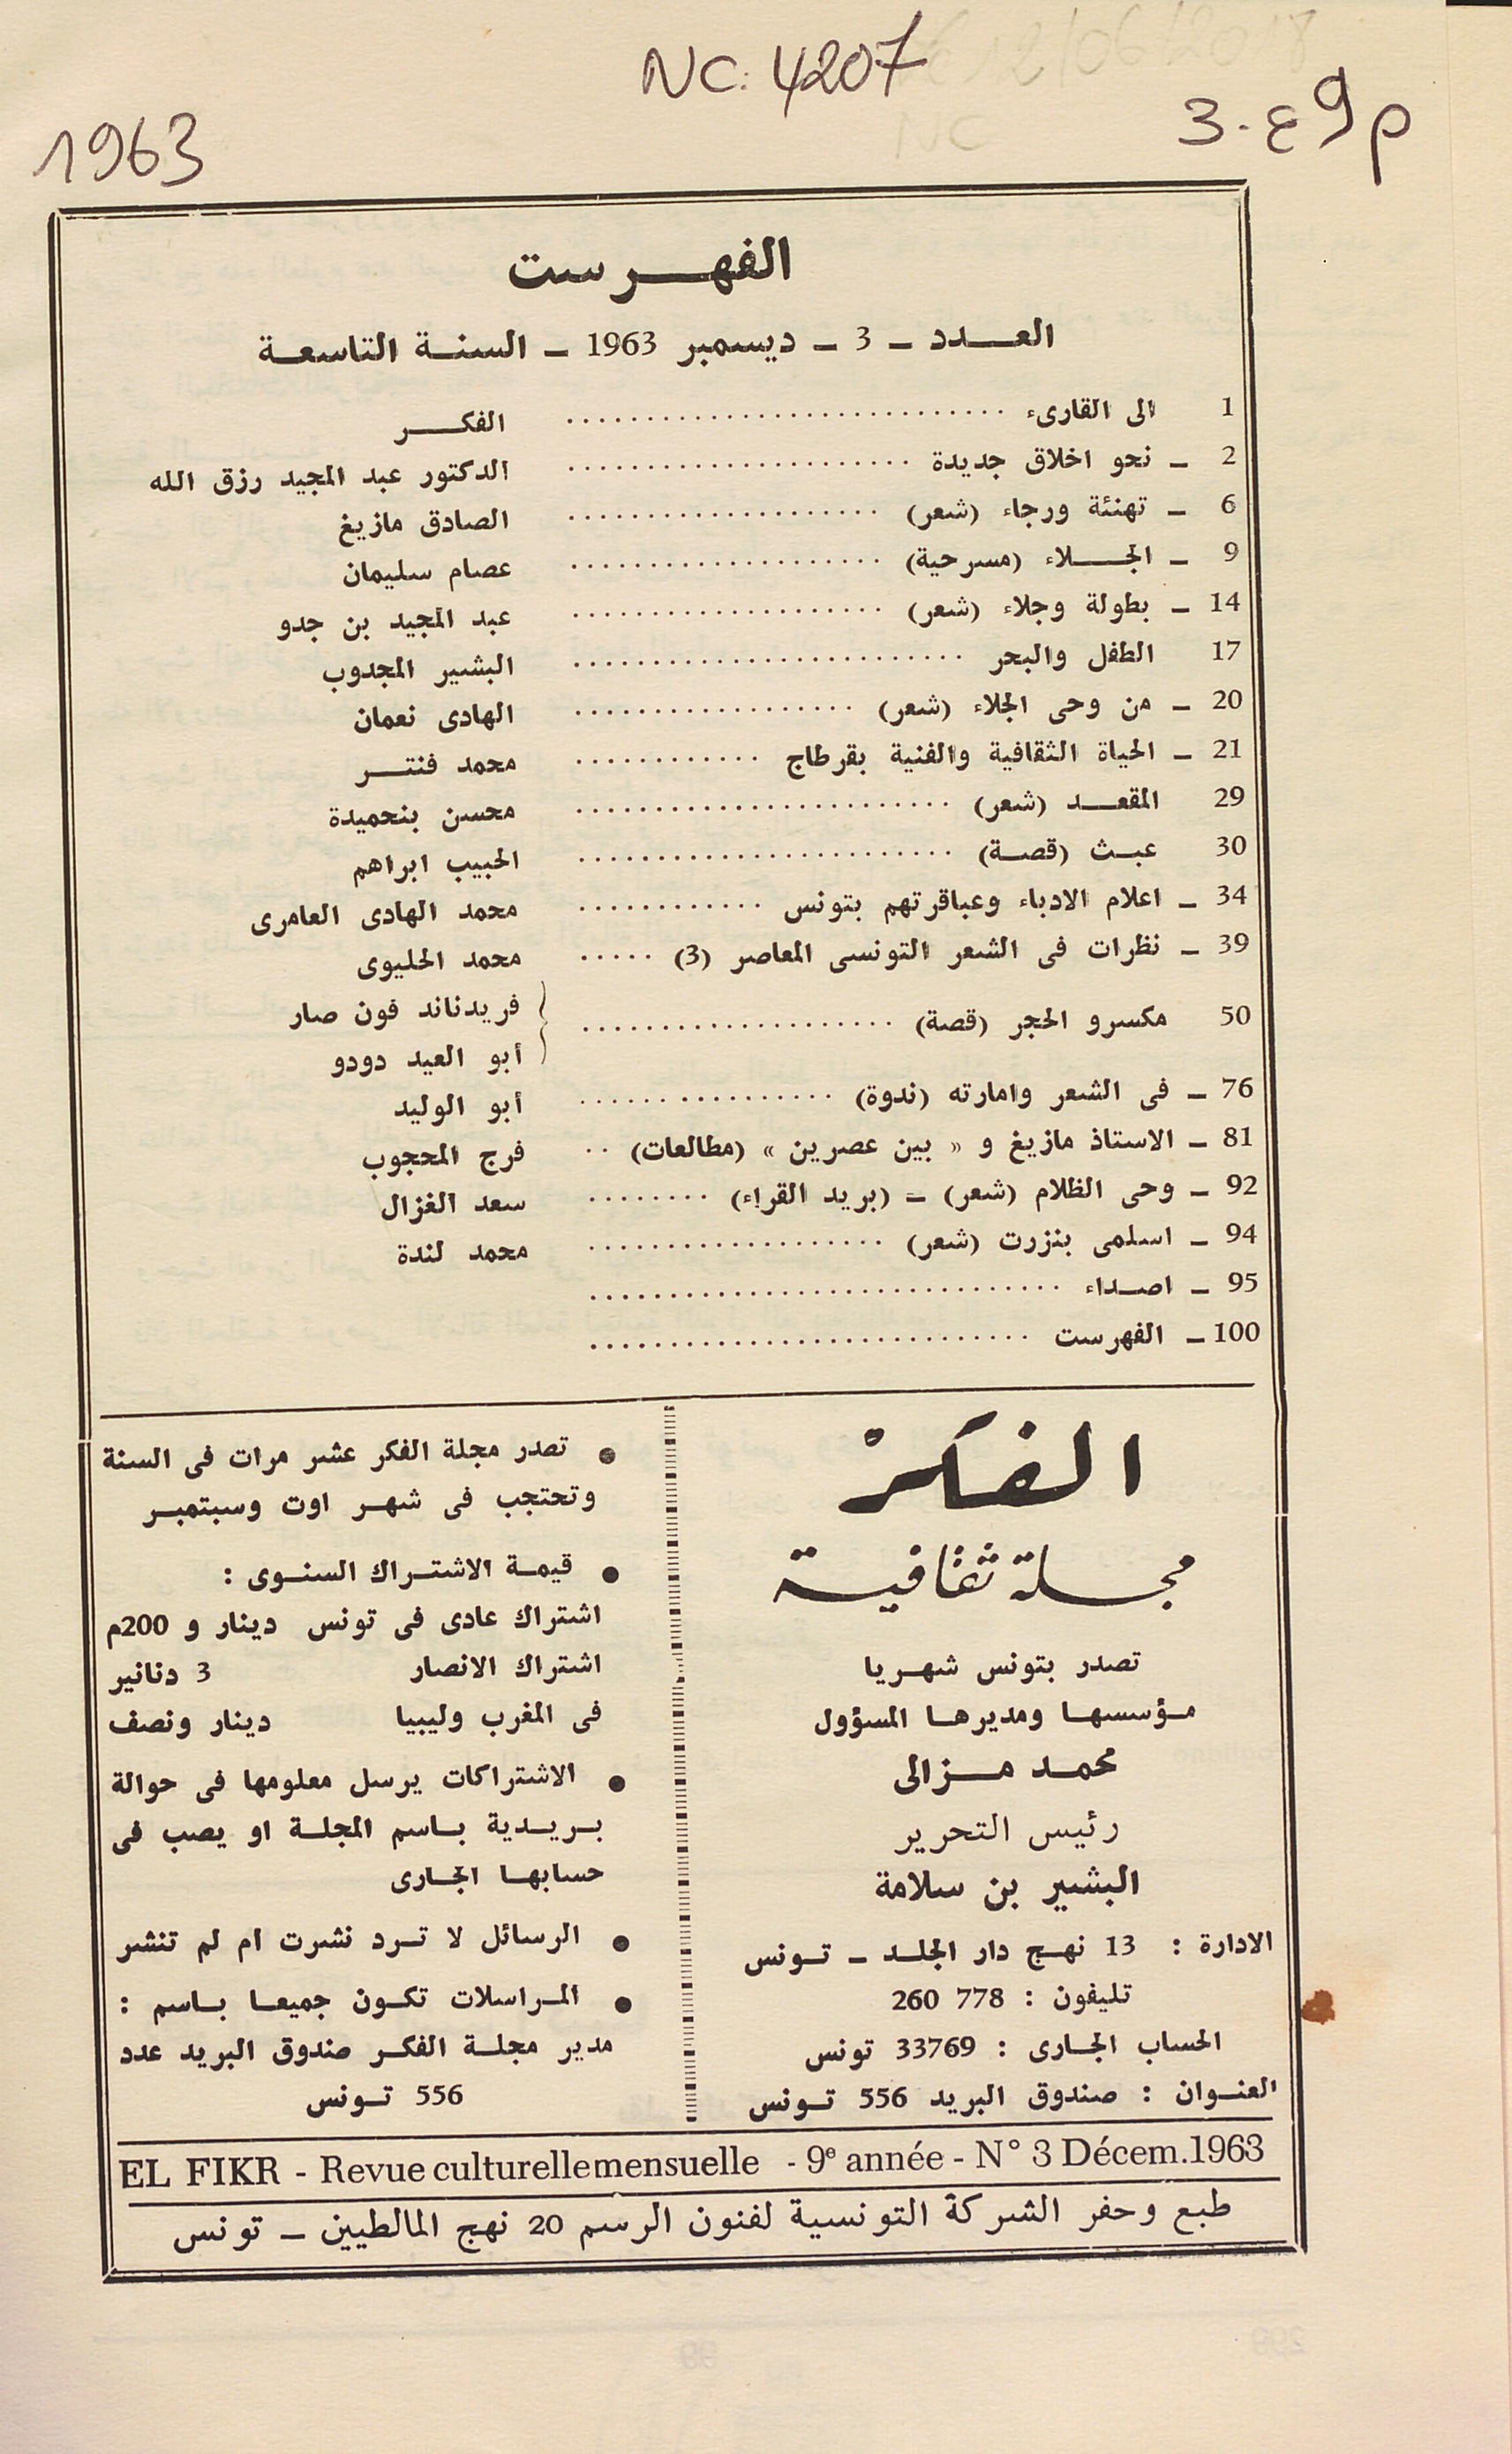 NC: 4207
1963
م 9 ع. 3
الفهرست
العدد ـ 3 ـ ديسمبر 1963 ـ السنة التاسعة
1 الى القارىء ............................ الفكر
2 ـ نحو اخلاق جديدة ...................... الدكتور عبد المجيد رزق الله
6 ـ تهنئة ورجاء (شعر) .................... الصادق مازيغ
9 ـ الجلاء (مسرحية) .................... عصام سليمان
14 ـ بطولة وجلاء (شعر) .................... عبد المجيد بن جدو
17 الطفل والبحر ......................... البشير المجدوب
20 ـ من وحى الجلاء (شعر) .................. الهادى نعمان
21 ـ الحياة الثقافية والفنية بقرطاج ............ محمد فنتر
29 المقعد (شعر) ........................ محسن بنحميدة
30 عبث (قصة) ........................ الحبيب ابراهم
34 ـ اعلام الادباء وعباقرتهم بتونس ............ محمد الهادى العامرى
39 ـ نظرات فى الشعر التونسى المعاصر (3) ..... محمد الحليوى
50 مكسرو الحجر (قصة) .................... { فريدناند فون صار
أبو العيد دودو
76 ـ فى الشعر وامارته (ندوة) ................ أبو الوليد
81 ـ الاستاذ مازيغ و « بين عصرين » (مطالعات) .. فرج المحجوب
92 ـ وحى الظلام (شعر) ـ (بريد القراء) ........ سعد الغزال
94 ـ اسلمى بنزرت (شعر) ................... محمد لندة
95 ـ اصداء ..............................
100 ـ الفهرست ............................
الفكر
مجلة ثقافية
تصدر بتونس شهريا
مؤسسها ومديرها المسؤول
محمد مزالى
رئيس التحرير
البشير بن سلامة
الادارة : 13 نهج دار الجلد ـ تونس
تليفون : 778 260
الحساب الجارى : 33769 تونس
العنوان : صندوق البريد 556 تونس
● تصدر مجلة الفكر عشر مرات فى السنة
وتحتجب فى شهر اوت وسبتمبر
● قيمة الاشتراك السنوى :
اشتراك عادى فى تونس دينار و 200م
اشتراك الانصار 3 دنانير
فى المغرب وليبيا دينار ونصف
● الاشتراكات يرسل معلومها فى حوالة
بريدية باسم المجلة او يصب فى
حسابها الجارى
● الرسائل لا ترد نشرت ام لم تنشر
● المراسلات تكون جميعا باسم :
مدير مجلة الفكر صندوق البريد عدد
556 تونس
EL FIKR - Revue culturelle mensuelle - 9e année - N° 3 Décem. 1963
طبع وحفر الشركة التونسية لفنون الرسم 20 نهج المالطيين ـ تونس